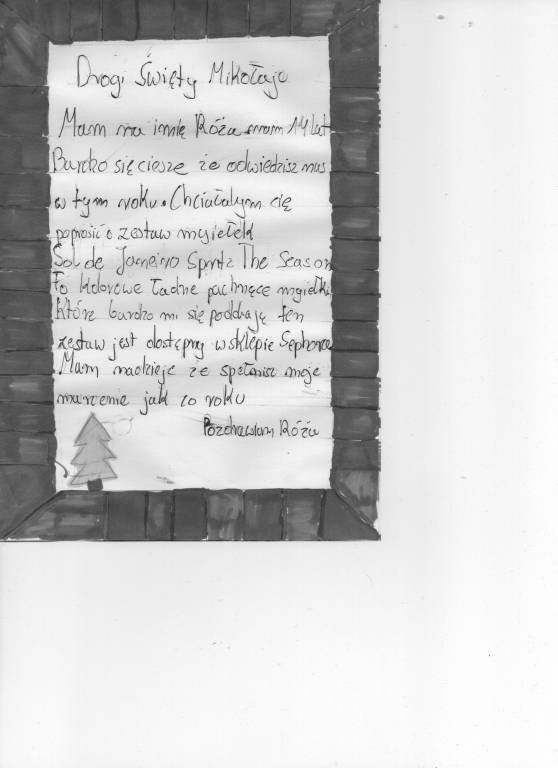 Drogi Święty Mikołaju
Mam na imię Róża mam 14 lat
Bardzo się ciesze że odwiedzisz nas
w tym roku. Chciałabym cię
poprosić o zestaw mgiełek
Sol de Janeiro Spritz The Season
To kolorowe ładne pachnące mgiełki
które bardzo mi się podobają ten
zestaw jest dostępny w sklepie Sephora
Mam nadzieje że spełnisz moje
marzenie jak co roku
Pozdrawiam Róża